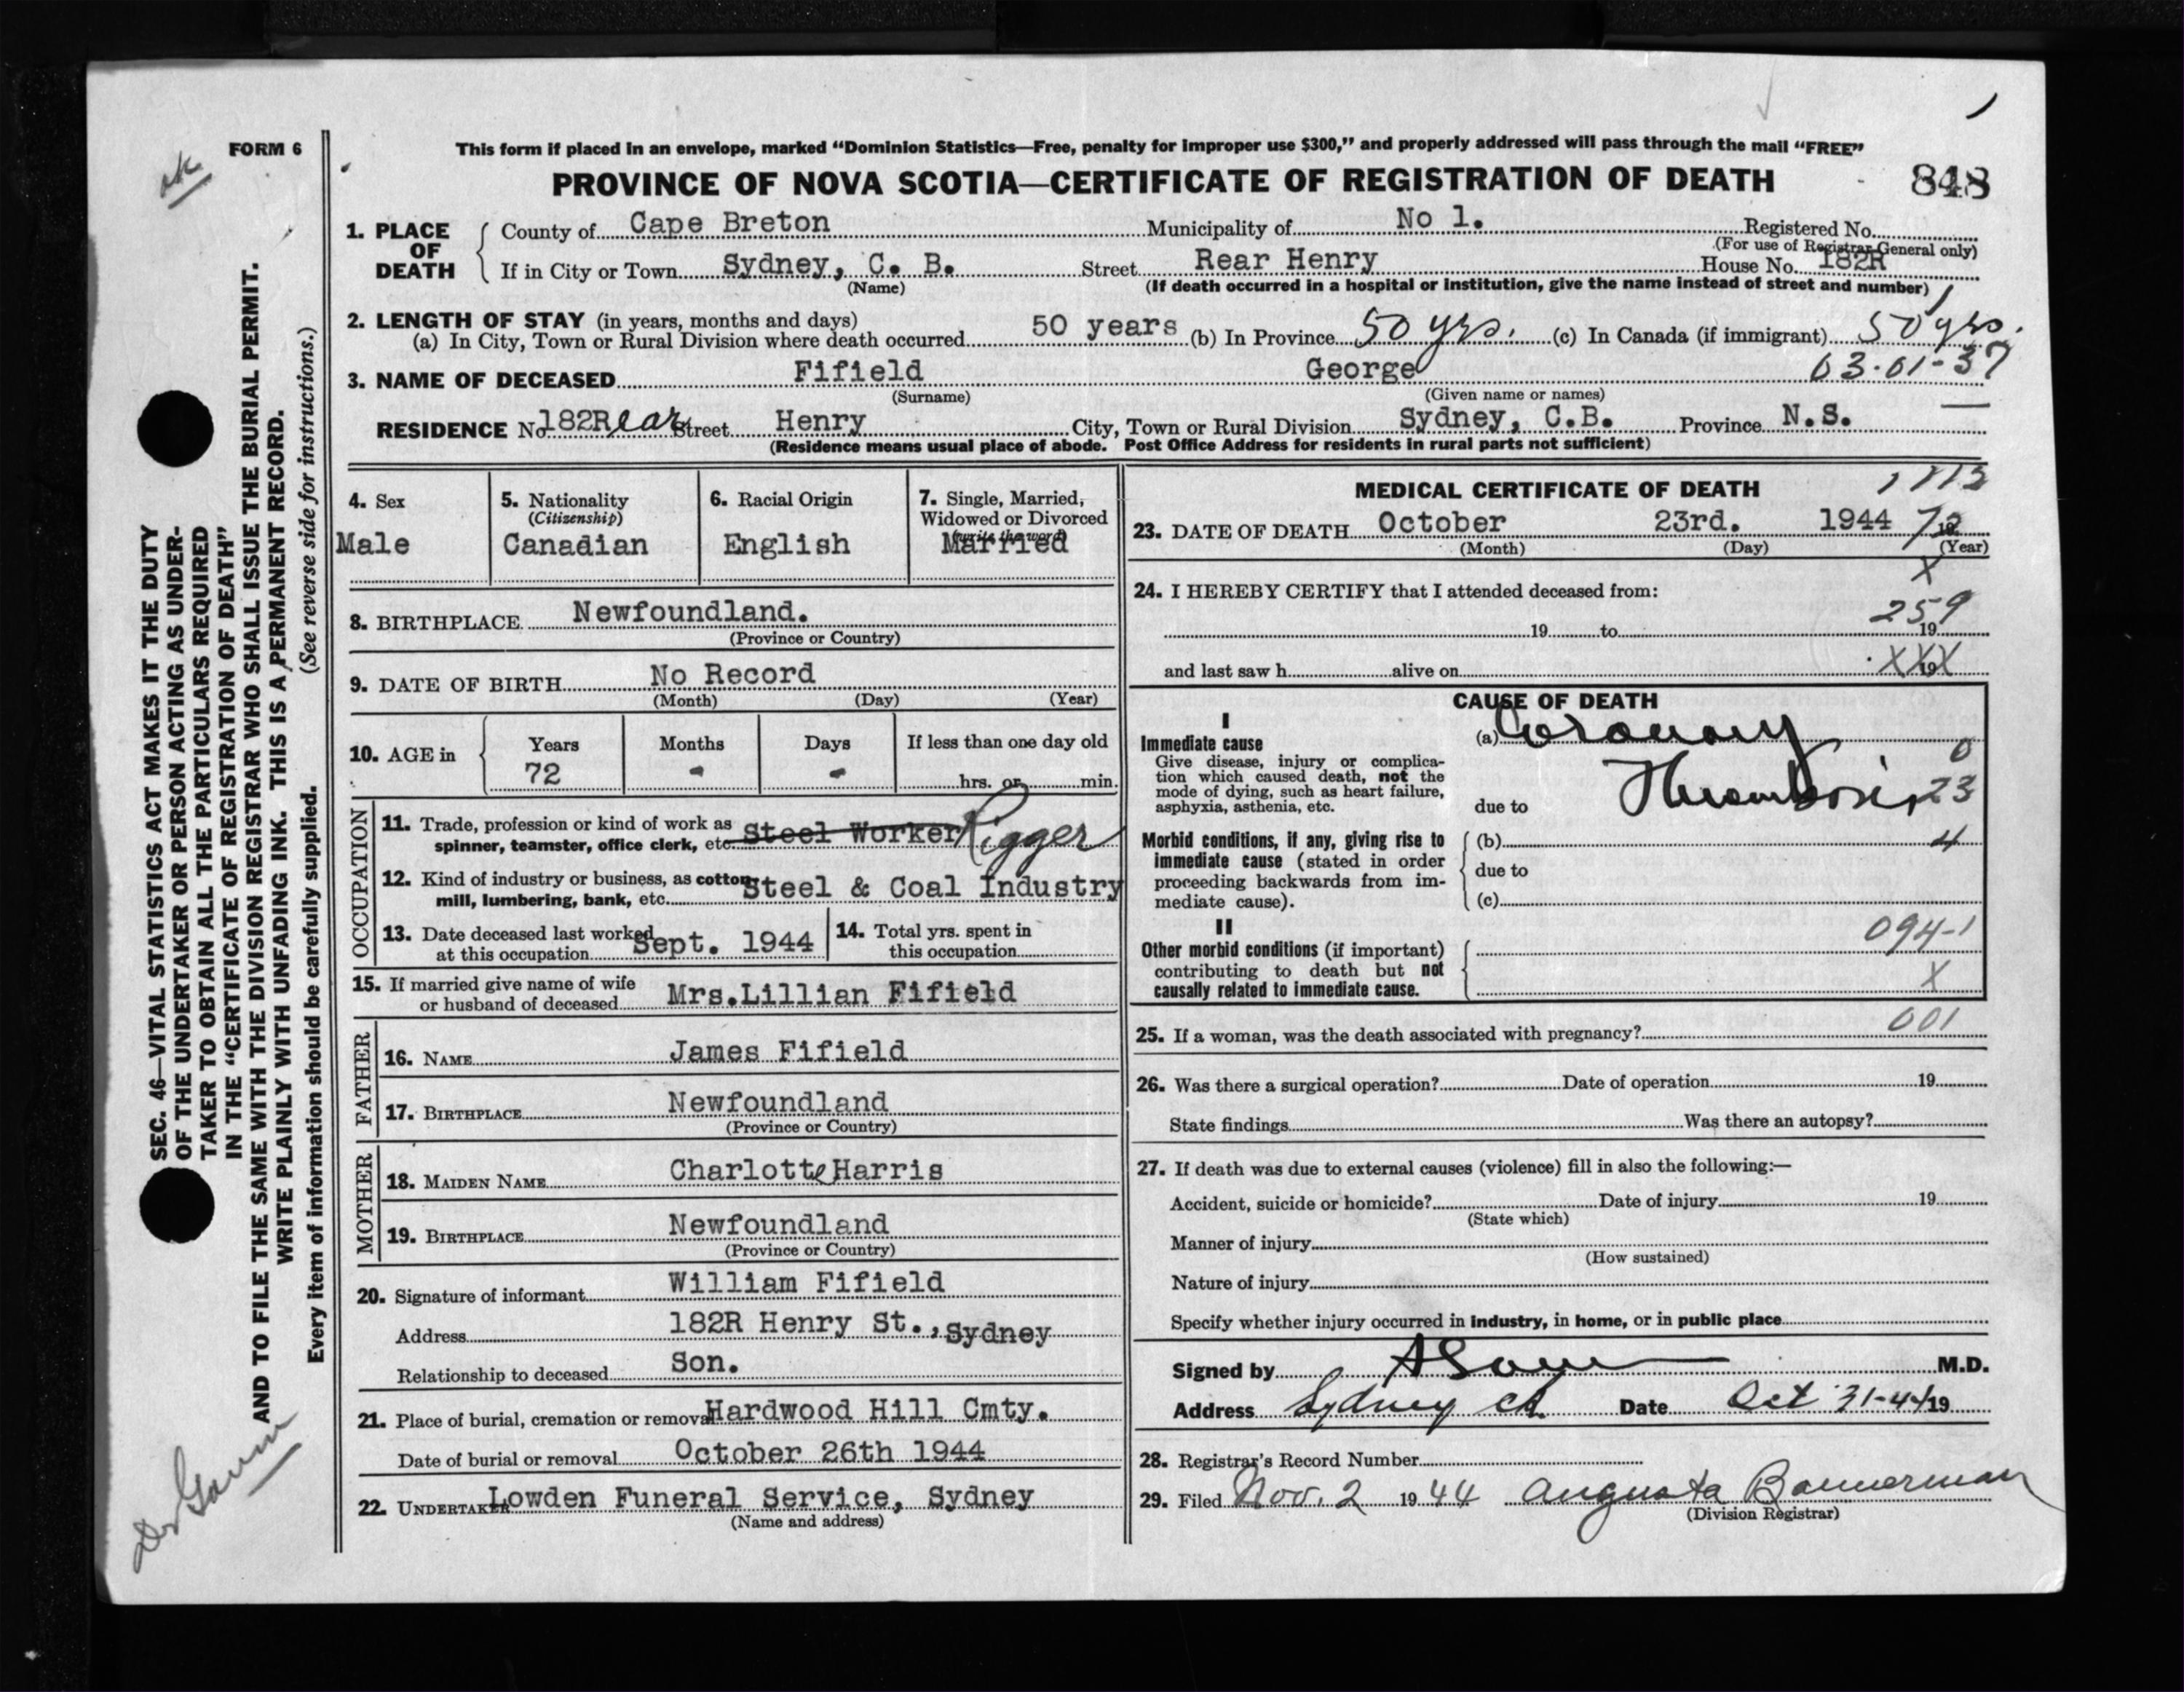 FORM 6
ok
This form if placed in an envelope, marked “Dominion Statistics—Free, penalty for improper use $300,” and properly addressed will pass through the mail “FREE”
PROVINCE OF NOVA SCOTIA—CERTIFICATE OF REGISTRATION OF DEATH
848
1. PLACE OF DEATH
County of Cape Breton Municipality of No 1. Registered No.
(For use of Registrar General only)
If in City or Town Sydney, C. B. Street Rear Henry House No. 182R
(Name) (If death occurred in a hospital or institution, give the name instead of street and number)
2. LENGTH OF STAY (in years, months and days)
(a) In City, Town or Rural Division where death occurred 50 years (b) In Province 50 yrs. (c) In Canada (if immigrant) 50 yrs.
3. NAME OF DECEASED Fifield George 03-01-37
(Surname) (Given name or names)
RESIDENCE No 182Rear Street Henry City, Town or Rural Division Sydney, C.B. Province N.S.
(Residence means usual place of abode. Post Office Address for residents in rural parts not sufficient)
4. Sex
Male
5. Nationality
(Citizenship)
Canadian
6. Racial Origin
English
7. Single, Married,
Widowed or Divorced
(write the word)
Married
8. BIRTHPLACE Newfoundland.
(Province or Country)
9. DATE OF BIRTH No Record
(Month) (Day) (Year)
10. AGE in Years Months Days If less than one day old
72 - - hrs. or min.
OCCUPATION
11. Trade, profession or kind of work as
spinner, teamster, office clerk, etc. Steel Worker Rigger
12. Kind of industry or business, as cotton
mill, lumbering, bank, etc. Steel & Coal Industry
13. Date deceased last worked
at this occupation Sept. 1944
14. Total yrs. spent in
this occupation
15. If married give name of wife
or husband of deceased Mrs.Lillian Fifield
FATHER
16. NAME James Fifield
17. BIRTHPLACE Newfoundland
(Province or Country)
MOTHER
18. MAIDEN NAME Charlotte Harris
19. BIRTHPLACE Newfoundland
(Province or Country)
20. Signature of informant William Fifield
Address 182R Henry St., Sydney
Relationship to deceased Son.
21. Place of burial, cremation or removal Hardwood Hill Cmty.
Date of burial or removal October 26th 1944
22. UNDERTAKER Lowden Funeral Service, Sydney
(Name and address)
MEDICAL CERTIFICATE OF DEATH
1113
23. DATE OF DEATH October 23rd. 1944 72 19
(Month) (Day) (Year)
X
24. I HEREBY CERTIFY that I attended deceased from:
259
19 to 19
and last saw h alive on XXX 19
CAUSE OF DEATH
I
Immediate cause
Give disease, injury or complica-
tion which caused death, not the
mode of dying, such as heart failure,
asphyxia, asthenia, etc.
(a) Coronary
0
due to Thrombosis
23
Morbid conditions, if any, giving rise to
immediate cause (stated in order
proceeding backwards from im-
mediate cause).
(b) 4
due to
(c)
II
Other morbid conditions (if important)
contributing to death but not
causally related to immediate cause.
094-1
X
25. If a woman, was the death associated with pregnancy? 001
26. Was there a surgical operation? Date of operation 19
State findings Was there an autopsy?
27. If death was due to external causes (violence) fill in also the following:—
Accident, suicide or homicide? Date of injury 19
(State which)
Manner of injury
(How sustained)
Nature of injury
Specify whether injury occurred in industry, in home, or in public place
Signed by M.D.
Address Sydney Date Oct 31-44 19
28. Registrar's Record Number
29. Filed Nov. 2 1944 Augusta Bannerman
(Division Registrar)
SEC. 46—VITAL STATISTICS ACT MAKES IT THE DUTY
OF THE UNDERTAKER OR PERSON ACTING AS UNDER-
TAKER TO OBTAIN ALL THE PARTICULARS REQUIRED
IN THE “CERTIFICATE OF REGISTRATION OF DEATH”
AND TO FILE THE SAME WITH THE DIVISION REGISTRAR WHO SHALL ISSUE THE BURIAL PERMIT.
WRITE PLAINLY WITH UNFADING INK. THIS IS A PERMANENT RECORD.
Every item of information should be carefully supplied. (See reverse side for instructions.)
Dr